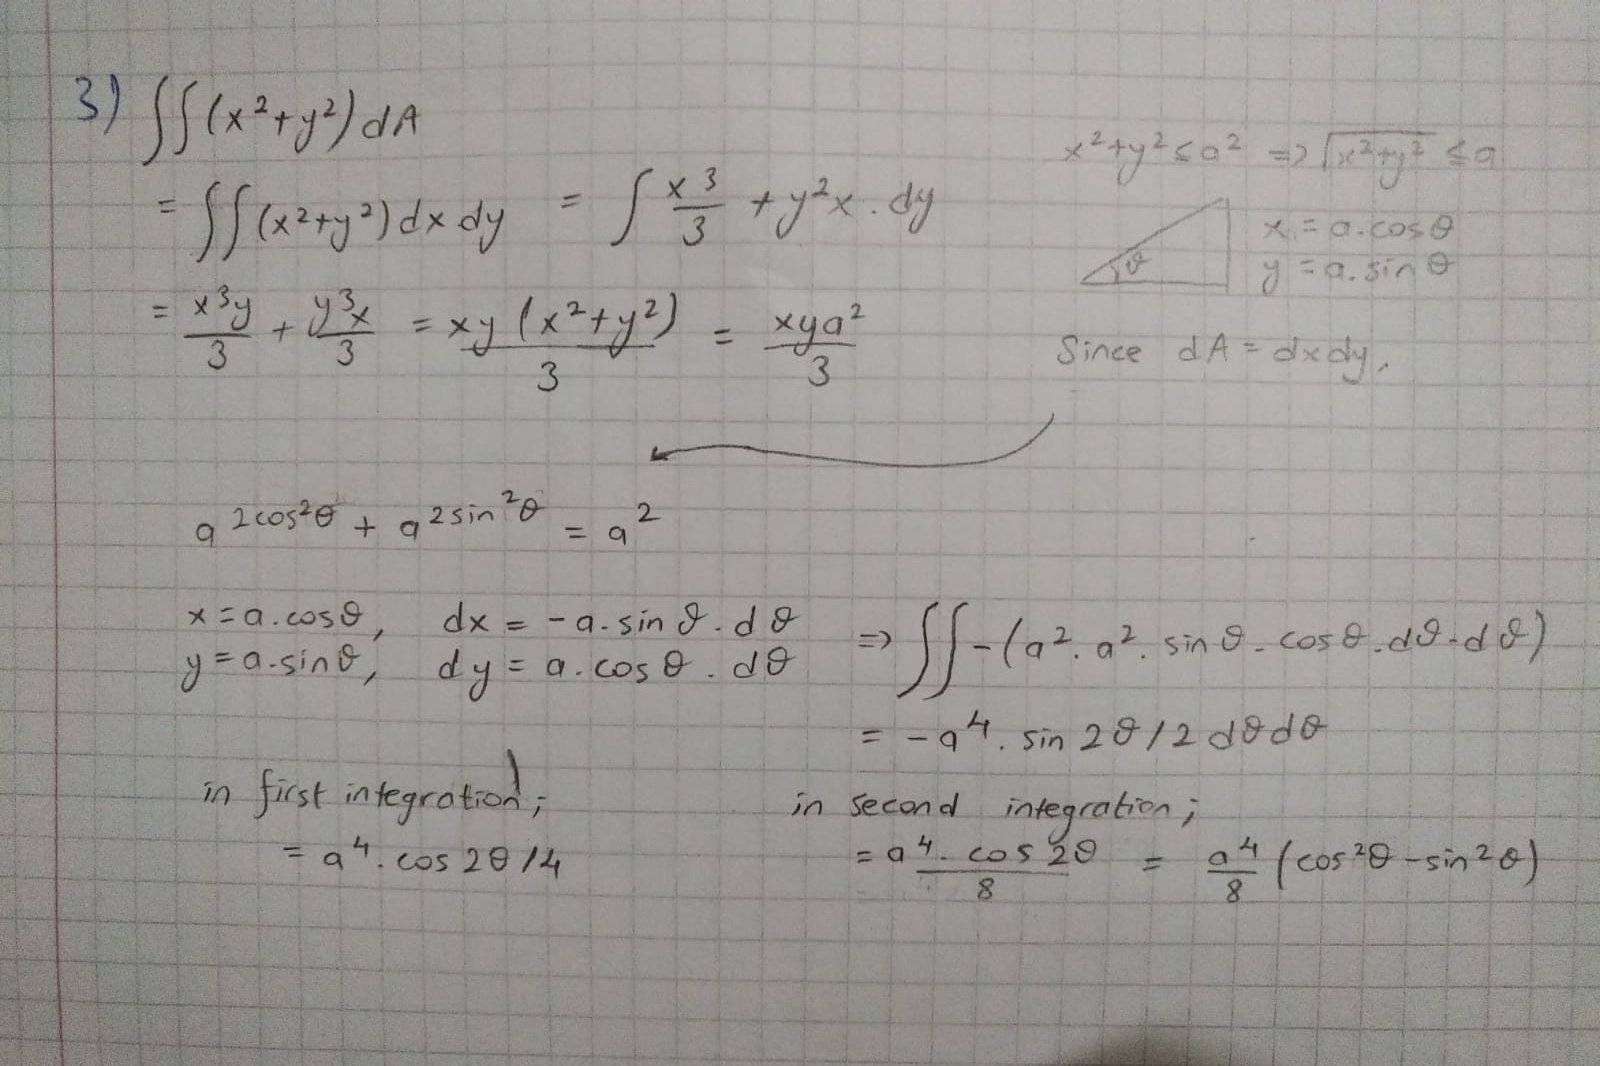 3) ∫∫(x²+y²)dA
= ∫∫(x²+y²)dxdy = ∫ x³/3 + y²x . dy
= x³y/3 + y³x/3 = xy(x²+y²)/3 = xya²/3
x²+y² ≤ a² => √(x²+y²) ≤ a
x = a.cosθ
θ
y = a.sinθ
Since dA = dxdy,
a^(2cos²θ) + a^(2sin²θ) = a²
x = a.cosθ, dx = -a.sinθ.dθ
y = a.sinθ, dy = a.cosθ.dθ
=> ∫∫-(a².a².sinθ.cosθ.dθ.dθ)
= -a⁴.sin2θ/2 dθdθ
in first integration;
= a⁴.cos2θ/4
in second integration;
= a⁴.cos2θ/8 = a⁴/8 (cos²θ-sin²θ)